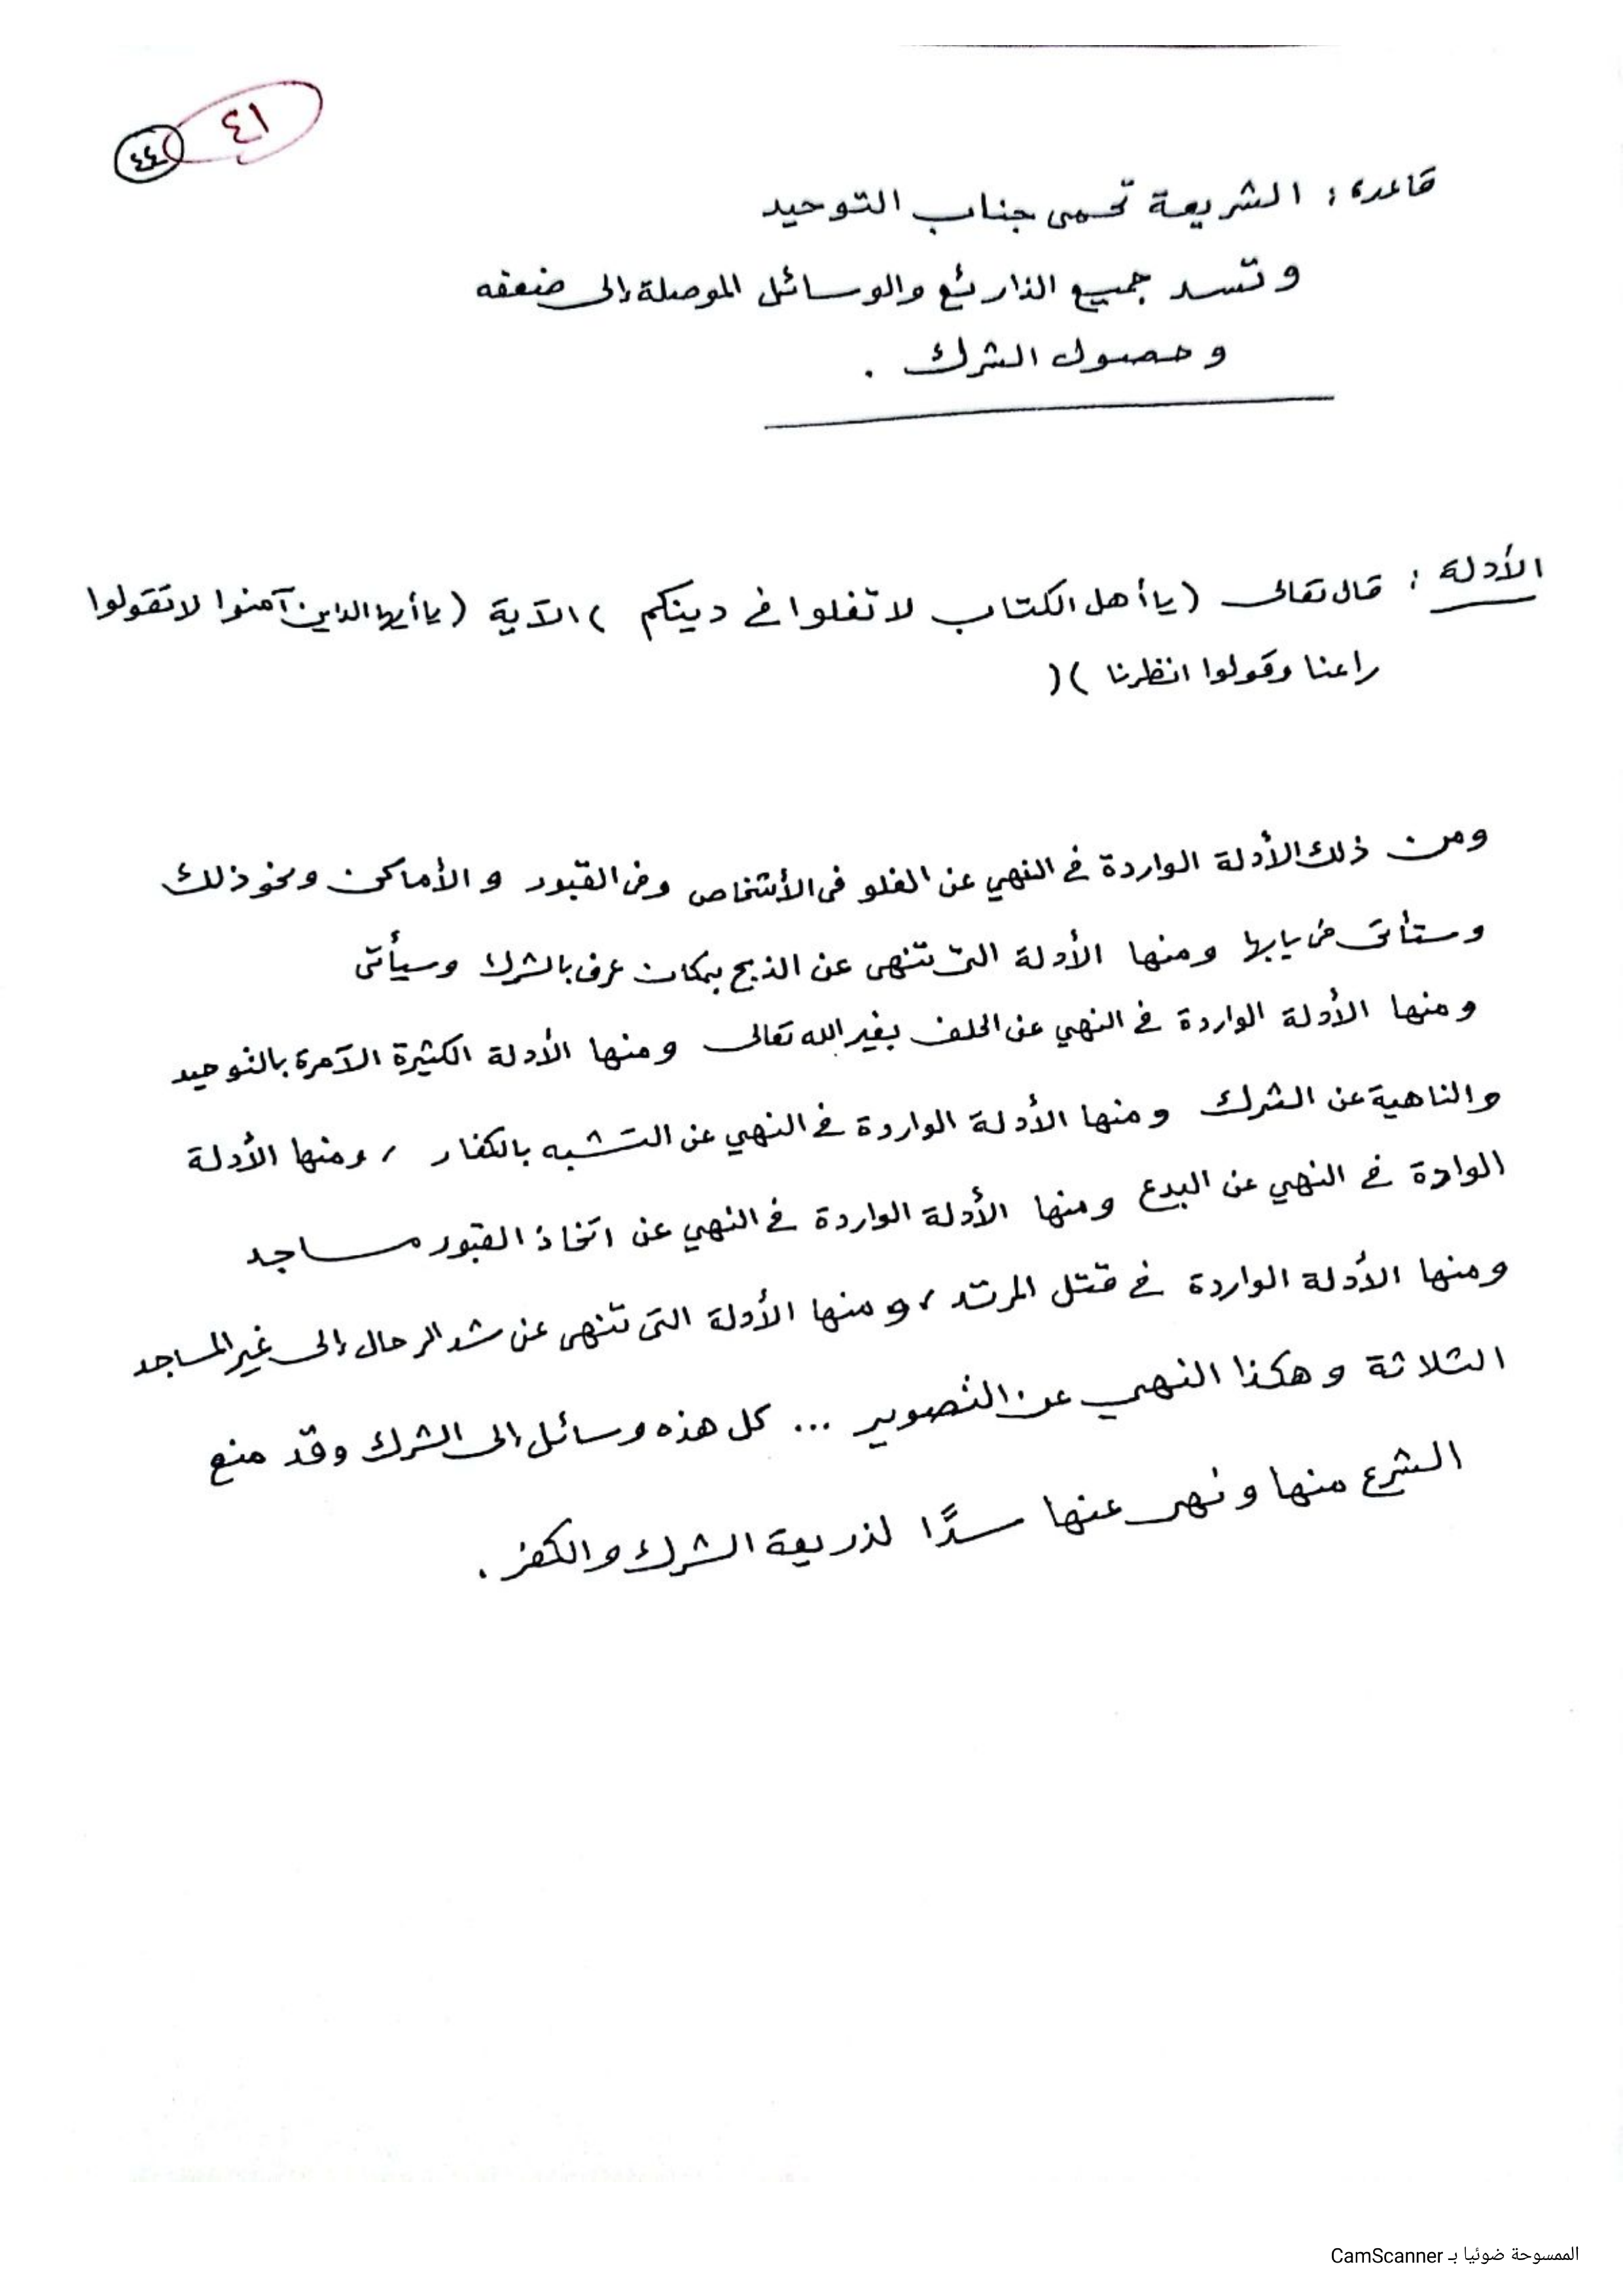 ٤١
٤٤
قاعدة : الشريعة تحمى جناب التوحيد
و تسد جميع الذارئع والوسائل الموصلة إلى ضعفه
و حصول الشرك .
الأدلة : قال تعالى ( يا أهل الكتاب لا تغلوا في دينكم ) الآية ( يا أيها الذين آمنوا لا تقولوا
راعنا وقولوا انظرنا ) (
ومن ذلك الأدلة الواردة في النهي عن الغلو فى الأشخاص وفى القبور و الأماكن ونحو ذلك
وستأتى فى بابها ومنها الأدلة التى تنهى عن الذبح بمكان عرف بالشرك وسيأتى
ومنها الأدلة الواردة في النهي عن الحلف بغير الله تعالى ومنها الأدلة الكثيرة الآمرة بالتوحيد
والناهية عن الشرك ومنها الأدلة الواردة في النهي عن التشبه بالكفار ، ومنها الأدلة
الوادة في النهي عن البدع ومنها الأدلة الواردة في النهي عن اتخاذ القبور مساجد
ومنها الأدلة الواردة في قتل المرتد ، ومنها الأدلة التى تنهى عن شد الرحال إلى غير المساجد
الثلاثة وهكذا النهي عن التصوير ... كل هذه وسائل إلى الشرك وقد منع
الشرع منها ونهى عنها سدًّا لذريعة الشرك والكفر .
الممسوحة ضوئيا بـ CamScanner